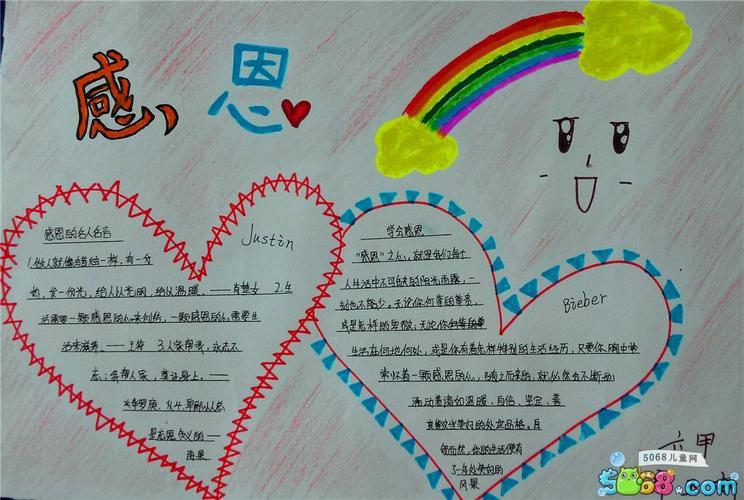 感恩
感恩的名人名言
Justin
1.做人就像蜡烛一样，有一分
热，发一份光，给人以光明，给以温暖。——肖楚女 2.生
活需要一颗感恩的心来创造，一颗感恩的心需要生
活来滋养。——王符 3.人家帮我，永志不
忘；我帮人家，莫记心上。——
华罗庚
忘恩负义的——
雨果
学会感恩
"感恩"之心，就是我们每个
人生活中不可或缺的阳光雨露，一
刻也不能少。无论你何等的尊贵，
或是怎样的卑微；无论你
生活在何地何处，或是你有着怎样特别的生活经历，只要你胸中常
常怀着一颗感恩的心，随之而来的，就必然会不断地
涌动着诸如温暖、自信、坚定、善
良
的处世品格。自
然而然，你的生活便有
了一
风景
Bieber
六甲
5068儿童网
5068.com